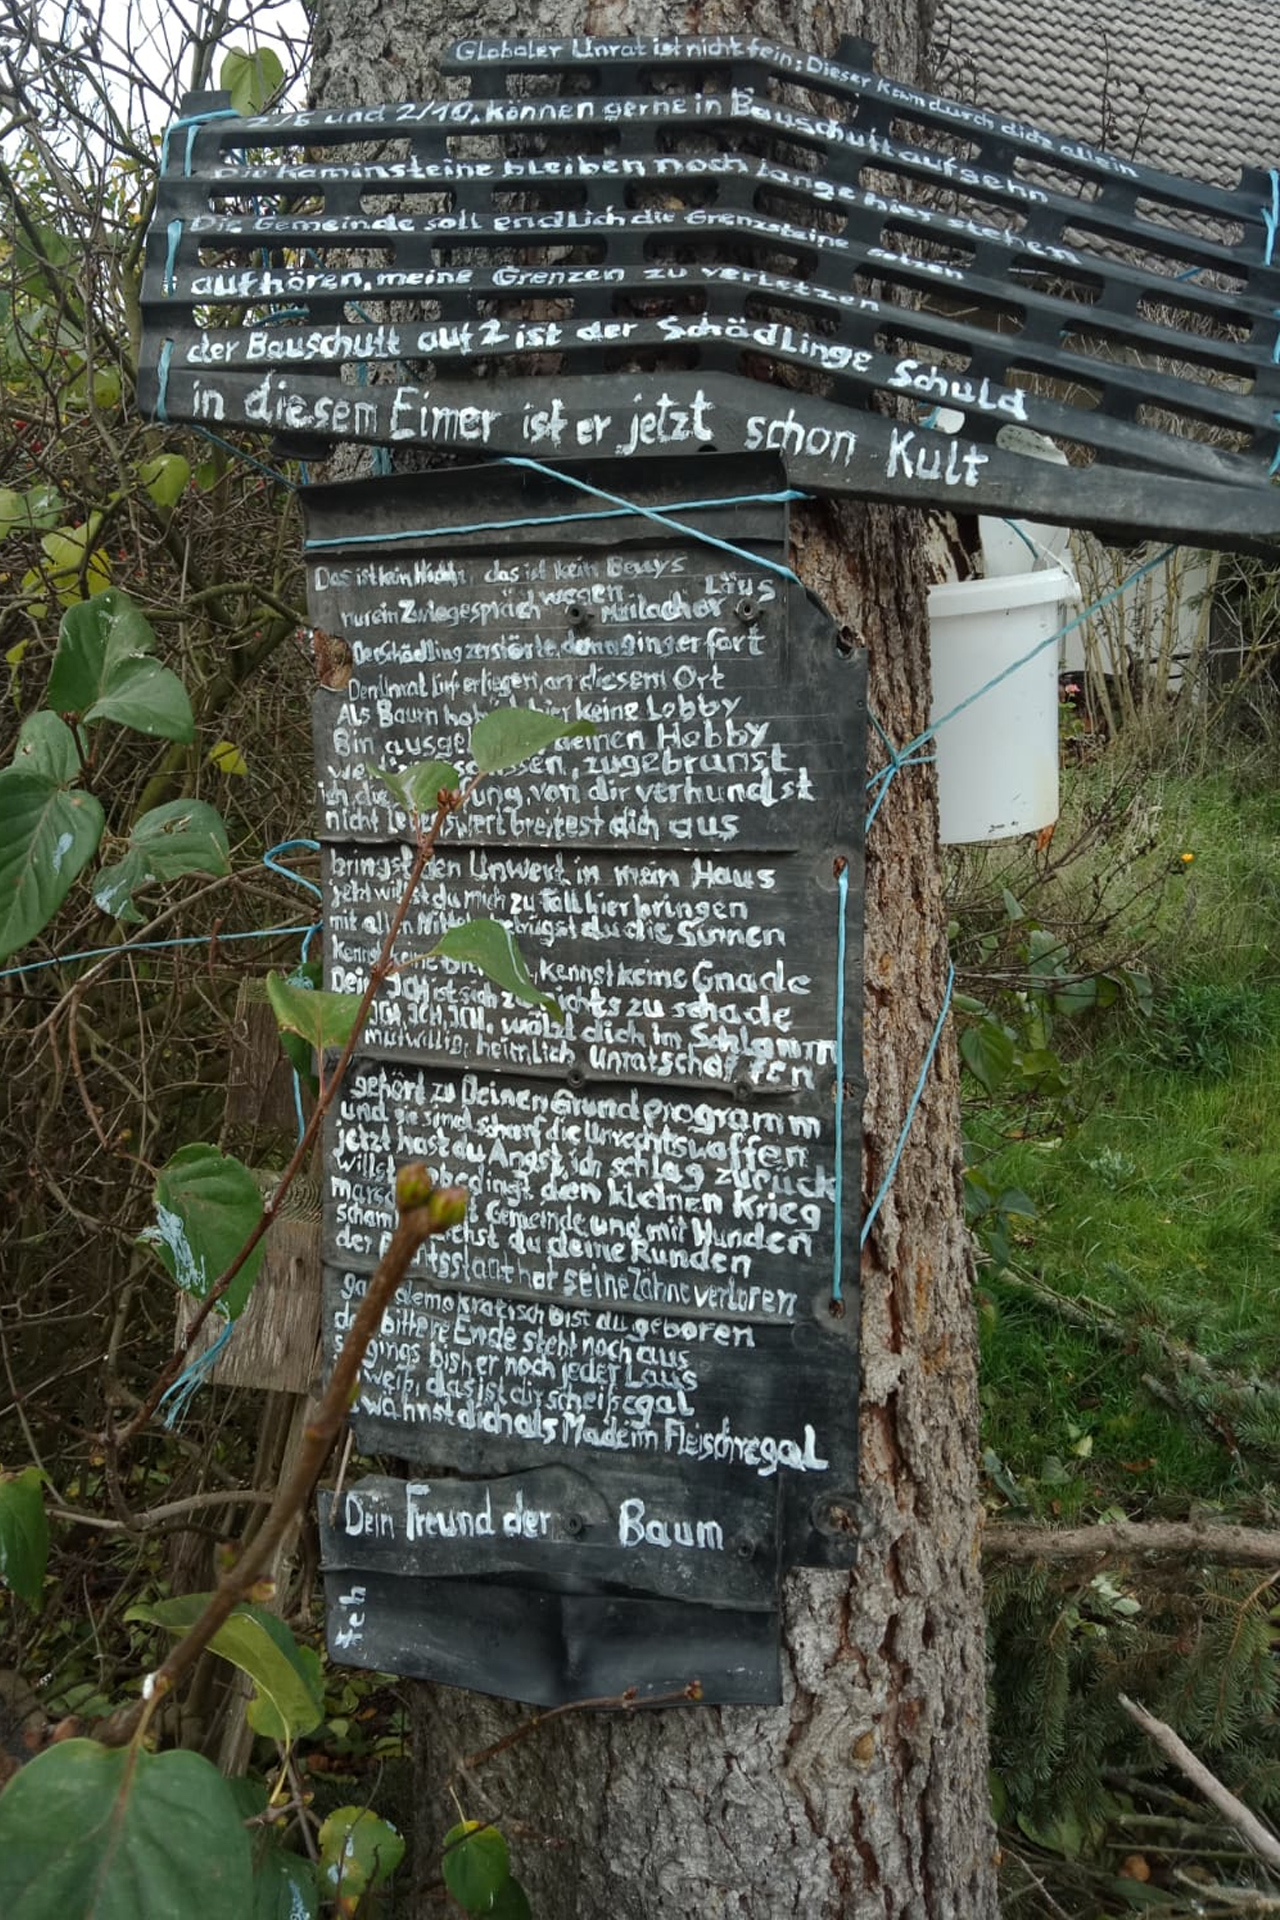 Globaler Unrat ist nicht fein; Dieser kam durch dich allein
und 2/10, können gerne in Bauschutt aufgehn
Die Kaminsteine bleiben noch lange hier stehen
Die Gemeinde soll endlich die Grenzsteine setzen
aufhören, meine Grenzen zu verletzen
der Bauschutt auf 2 ist der Schädlinge Schuld
in diesem Eimer ist er jetzt schon Kult
Das ist kein , das ist kein Beuys
nur ein Zwiegespräch wegen Läus
Der Schädling zerstörte, dann ging er fort
Denkmal liegen, an diesem Ort
Als Baum hier keine Lobby
Bin deinen Hobby
zugebrunst
ich, die von dir verhundst
nicht lebenswert breitest dich aus
bringst den Unwert in mein Haus
jetzt willst du mich zu Fall hier bringen
mit allen Mitteln betrügst du die Sinnen
kennst keine , kennst keine Gnade
Dein ICH ist sich zu nichts zu schade
ICH, ICH, ICH, wälzt dich im Schlamm
mutwillig, heimlich Unrat schaffen
gehört zu Deinen Grundprogramm
und sie sind scharf die Unrechtswaffen
jetzt hast du Angst, ich schlag zurück
willst unbedingt den kleinen Krieg
Gemeinde und mit Hunden
du deine Runden
der Rechtsstaat hat seine Zähne verloren
demokratisch bist du geboren
bittere Ende steht noch aus
gings bisher noch jeder Laus
weiß, das ist dir scheißegal
wähnst dich als Made im Fleischregal
Dein Freund der Baum